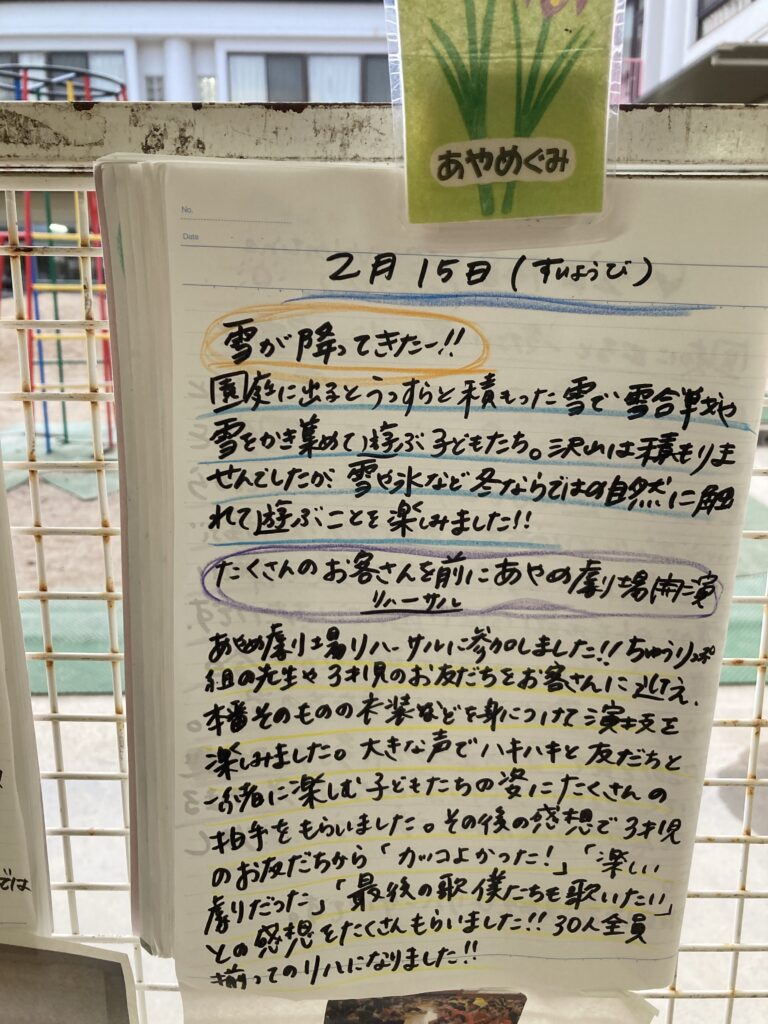 あやめぐみ
No.
Date
2月15日(すいようび)
雪が降ってきたー!!
園庭に出るとうっすらと積もった雪で雪合戦や
雪をかき集めて遊ぶ子どもたち。沢山は積もりま
せんでしたが雪や氷など冬ならではの自然に触
れて遊ぶことを楽しみました!!
たくさんのお客さんを前にあやめ劇場開演
リハーサル
あやめ劇場リハーサルに参加しました!!ちゅうりっぷ
組の先生や3才児のお友だちをお客さんに迎え、
本番そのものの衣装などを身につけて演技を
楽しみました。大きな声でハキハキと友だちと
一緒に楽しむ子どもたちの姿にたくさんの
拍手をもらいました。その後の感想で3才児
のお友だちから「カッコよかった!」「楽しい
劇だった」「最後の歌僕たちも歌いたい」
との感想をたくさんもらいました!!30人全員
揃ってのリハになりました!!
では